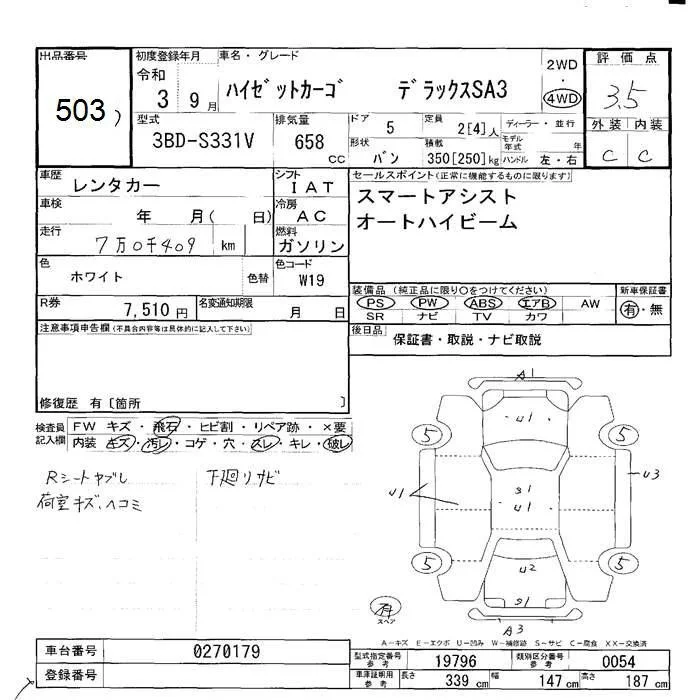 出品番号
503
初度登録年月
令和
3 9月
車名・グレード
ハイゼットカーゴ デラックスSA3
2WD
・
4WD
評価点
3.5
外装 内装
C C
型式
3BD-S331V
排気量
658
CC
ドア 5
定員 2[4]人
ディーラー・並行
モデル年式 年
形状 バン
積載 350[250]kg
ハンドル 左・右
車歴
レンタカー
シフト
IAT
セールスポイント(正常に機能するものに限ります)
スマートアシスト
オートハイビーム
車検
年 月( 日)
冷房
AC
走行
7万0千409 km
燃料
ガソリン
色
ホワイト
色替
色コード
W19
装備品(純正品に限り○をつけてください)
PS PW ABS エアB AW
SR ナビ TV カワ
新車保証書
有・無
R券
7,510円
名変通知期限
月 日
後日品
保証書・取説・ナビ取説
注意事項申告欄(不具合内容等は具体的に記入して下さい)
修復歴 有[箇所 ]
検査員記入欄
FW キズ・飛石・ヒビ割・リペア跡・×要
内装 キズ・汚レ・コゲ・穴・スレ・キレ・破レ
Rシートヤブレ
荷室キズ、ヘコミ
下廻リサビ
A1
U1
5
5
U1
U3
S1
U1
5
5
U2
S1
A3
有
スペア
A-キズ E-エクボ U-凹み W-補修跡 S-サビ C-腐食 XX-交換済
車台番号 0270179
登録番号
型式指定番号参考 19796
類別区分番号参考 0054
車庫証明用参考 長さ 339cm 幅 147cm 高さ 187cm